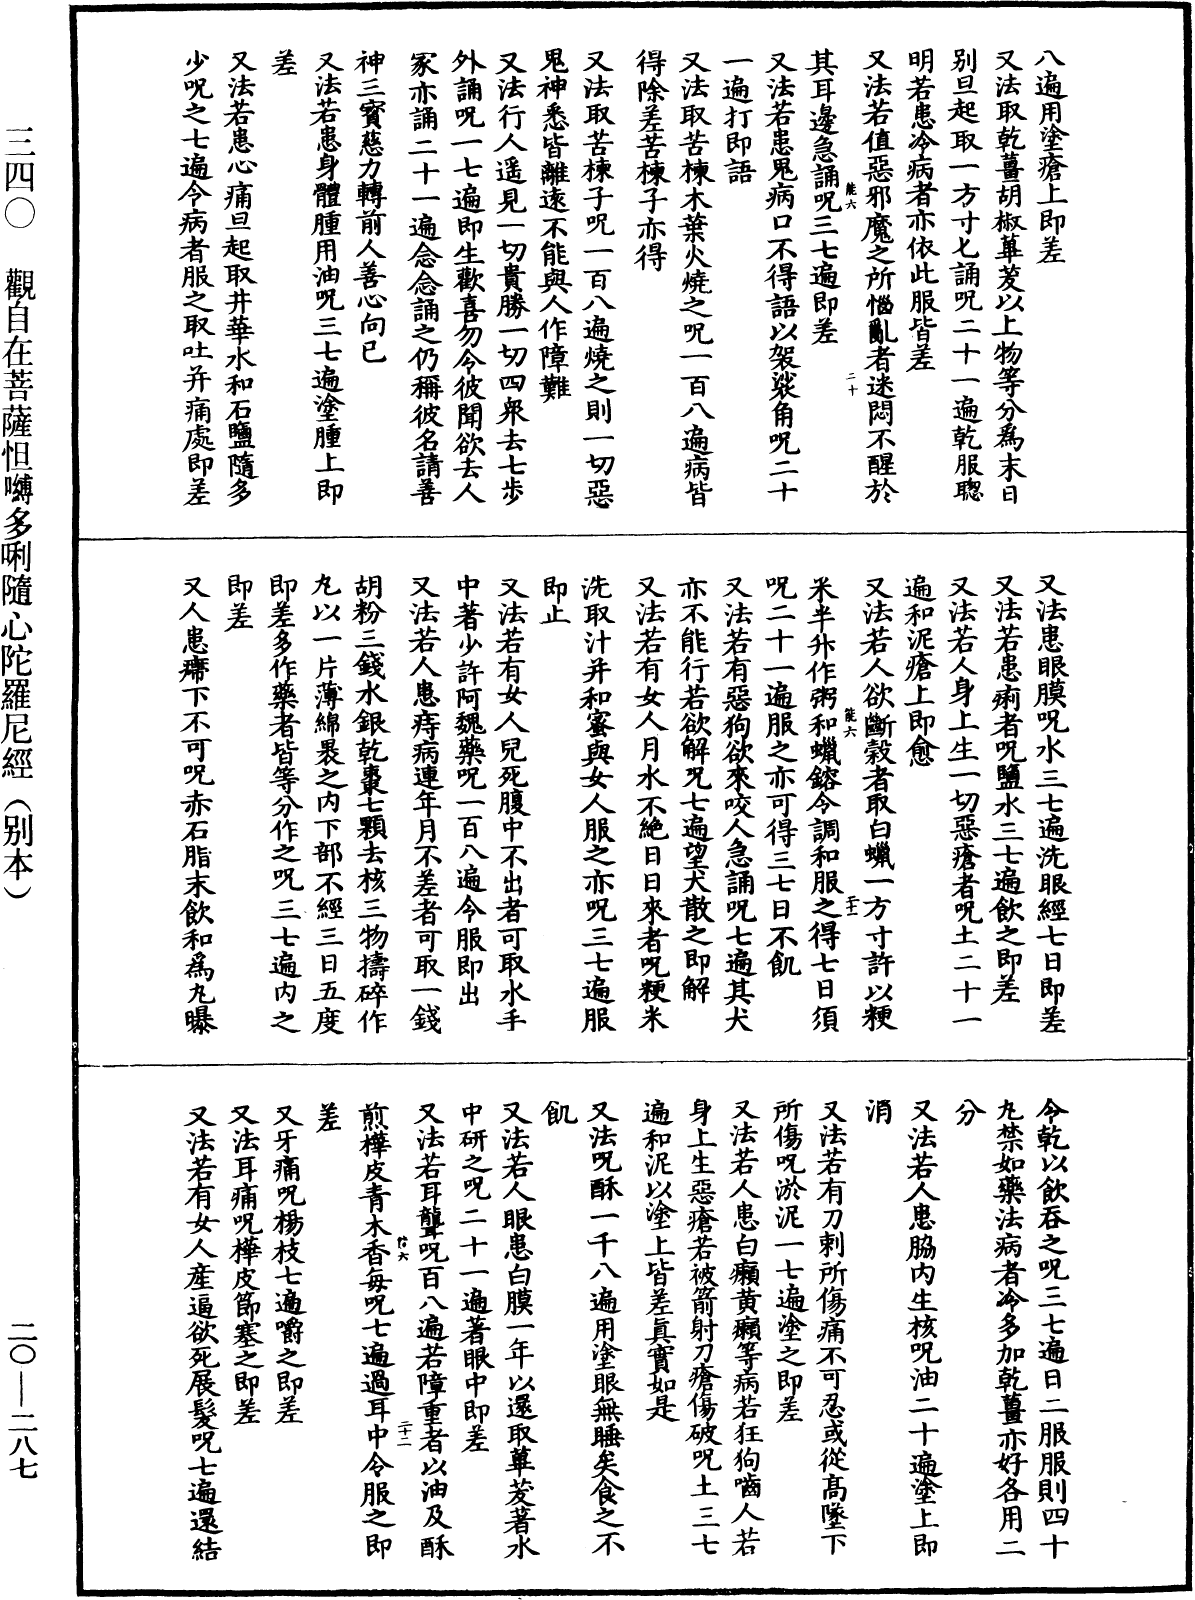 三四〇　觀自在菩薩怛嚩多唎隨心陀羅尼經（别本）
二〇——二八七
八遍用塗瘡上即差
又法取乾薑胡椒蓽茇以上物等分爲末日
别旦起取一方寸匕誦呪二十一遍乾服聦
明若患冷病者亦依此服皆差
又法若值惡邪魔之所惱亂者迷悶不醒於
其耳邊急誦呪三七遍即差
又法若患鬼病口不得語以袈裟角呪二十
一遍打即語
又法取苦楝木葉火燒之呪一百八遍病皆
得除差苦楝子亦得
又法取苦楝子呪一百八遍燒之則一切惡
鬼神悉皆離遠不能與人作障難
又法行人遥見一切貴勝一切四衆去七步
外誦呪一七遍即生歡喜勿令彼聞欲去人
家亦誦二十一遍念念誦之仍稱彼名請善
神三寳慈力轉前人善心向已
又法若患身體腫用油呪三七遍塗腫上即
差
又法若患心痛旦起取井華水和石鹽隨多
少呪之七遍令病者服之取吐并痛處即差
又法患眼膜呪水三七遍洗眼經七日即差
又法若患痢者呪鹽水三七遍飲之即差
又法若人身上生一切惡瘡者呪土二十一
遍和泥瘡上即愈
又法若人欲斷穀者取白蠟一方寸許以粳
米半升作粥和蠟鎔令調和服之得七日須
呪二十一遍服之亦可得三七日不飢
又法若有惡狗欲來咬人急誦呪七遍其犬
亦不能行若欲解呪七遍望犬散之即解
又法若有女人月水不絶日日來者呪粳米
洗取汁并和蜜與女人服之亦呪三七遍服
即止
又法若有女人兒死腹中不出者可取水手
中著少許阿魏藥呪一百八遍令服即出
又法若人患痔病連年月不差者可取一錢
胡粉三錢水銀乾棗七顆去核三物擣碎作
丸以一片薄綿裹之内下部不經三日五度
即差多作藥者皆等分作之呪三七遍内之
即差
又人患㿃下不可呪赤石脂末飲和爲丸曝
令乾以飲吞之呪三七遍日二服服則四十
丸禁如藥法病者冷多加乾薑亦好各用二
分
又法若人患脇内生核呪油二十遍塗上即
消
又法若有刀剌所傷痛不可忍或從髙墜下
所傷呪淤泥一七遍塗之即差
又法若人患白癩黄癩等病若狂狗嚙人若
身上生惡瘡若被箭射刀瘡傷破呪土三七
遍和泥以塗上皆差真實如是
又法呪酥一千八遍用塗眼無睡矣食之不
飢
又法若人眼患白膜一年以還取蓽茇著水
中研之呪二十一遍著眼中即差
又法若耳聾呪百八遍若障重者以油及酥
煎樺皮青木香每呪七遍過耳中令服之即
差
又牙痛呪楊枝七遍嚼之即差
又法耳痛呪樺皮節塞之即差
又法若有女人產逼欲死展髮呪七遍還結
能六
二十
能六
二十一
二十二